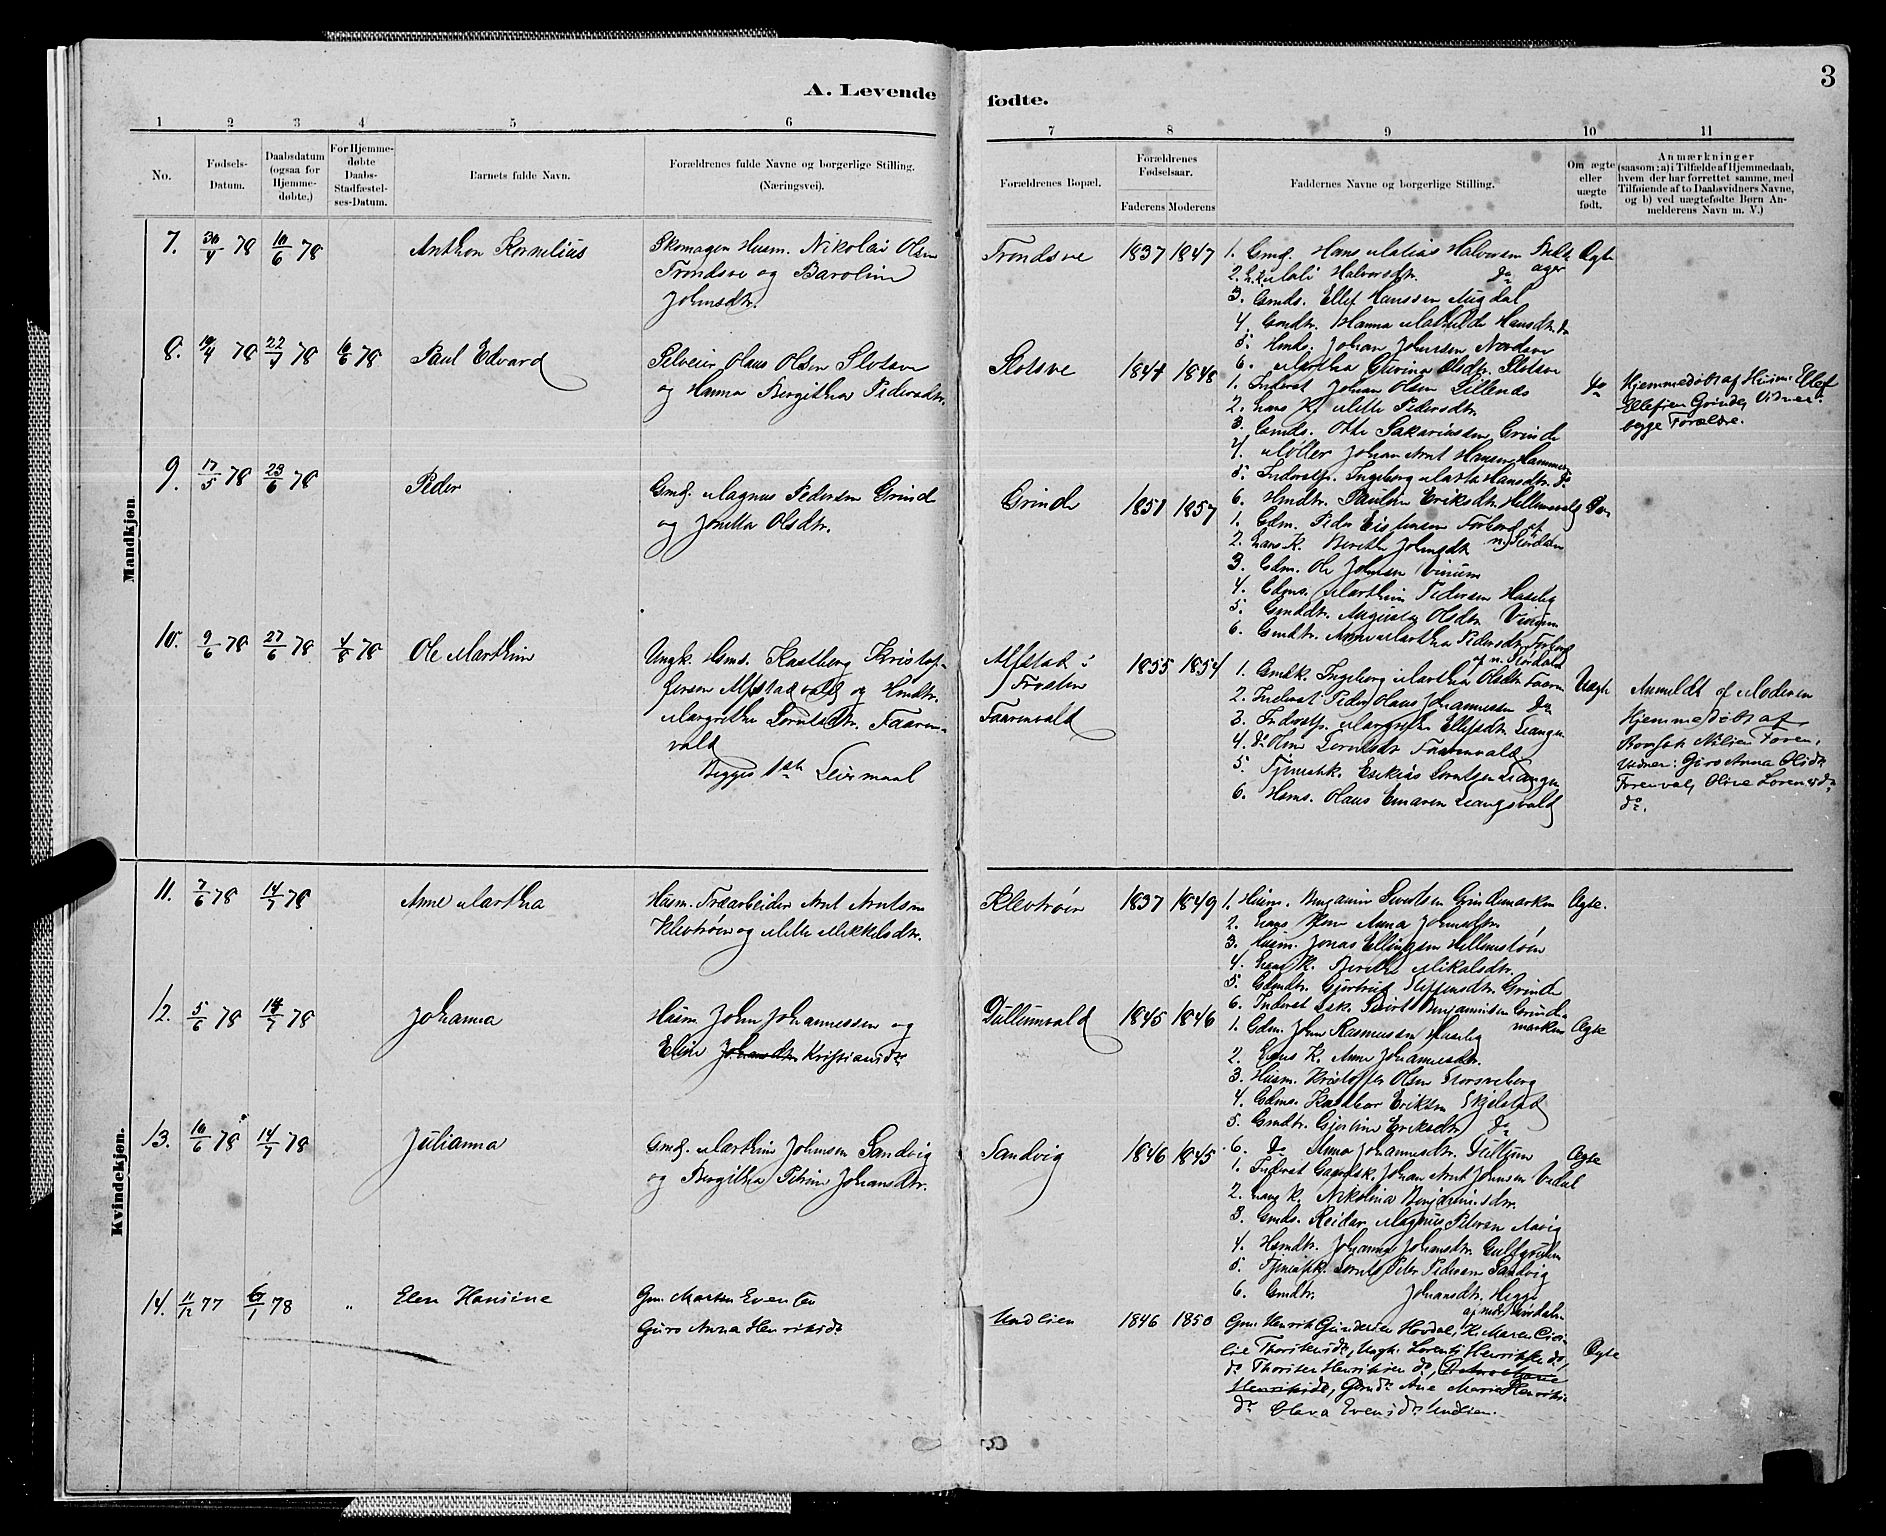 3
A. Levende fødte.
1 2 3 4 5 6 7 8 9 10 11
No.
Fødsels-Datum.
Daabsdatum (ogsaa for Hjemme-døbte.)
For Hjemme-døbte Daabs-Stadfæstel-ses-Datum.
Barnets fulde Navn.
Forældrenes fulde Navne og borgerlige Stilling. (Næringsvei).
Forældrenes Bopæl.
Forældrenes Fødselsaar.
Faderens Moderens
Faddernes Navne og borgerlige Stilling.
Om ægte eller uægte født.
Anmærkninger
(saasom: a) i Tilfælde af Hjemmedaab,
hvem der har forrettet samme, med
Tilføiende af to Daabsvidners Navne,
og b) ved uægtefødte Børn An-
melderens Navn m. V.)
Mandkjøn
7. 30/4 78 10/6 78 Anthon Kornelius
Nikolai Olsen
Trondsve og Baroline
Johnsdtr.
Trondsve 1837 1847
1. Gmd. Hans Matias Halvorsen
2. Halvorsdtr. do
3. Gmds. Ellef Hanssen
4. Gmdtr. Hanna Mathilde Hansdtr. do
5. Hmds. Johan Johnsen Nordsve
6. Martha Gurina Olsdtr. Slotsve
Ægte
8. 78 22/4 78 10/6 78 Paul Edvard
Olaus Olsen Slotsve
og Hanna Bergitha Pedersdtr.
Slotsve 1844 1848
1. Inderst Johan Olsen
2. hans K. Mette Pedersdtr
3. Gmds. Sakariassen Grinde
4. Møller Johan Arnt Hansen
5. Ingeborg Marta Hansdtr. do
6. Hmdtr. Pauline Eriksdtr.
do
Hjemmedøbt af Husm. Ellef
Ellefsen Grinde, Vidner:
begge Forældre.
9. 17/5 78 23/6 78 Peder
Gmd. Magnus Pedersen Grinde
og Jonetta Olsdtr.
Grinde 1851 1857
1. Gdm. Peder Forbord af
2. hans K. Berith Johnsdtr n. Størdalen
3. Gdm. Ole Johnsen Vinum
4. Gdms. Marthin Pedersen
5. Gmddtr. Augusta Olsdtr Vinum
6. Gmdtr. Anne Martha Pedersdtr. Forbord
af n. Størdalen
10. 9/6 78 27/6 78 4/8 78 Ole Marthin
Ungk. Gms. Kastberg Kristof-
fersen Alfstadvald og Hmdtr.
Margrethe Lorntsdtr. Faaren-
vald
Begges 1ste Leiermaal
Alfstad i
Frosten
Faarenvald
1855 1854
1. Ingeborg Martha Olsdtr. Faaren
2. Inderst Peder Olaus Johannessen do
3. Margrethe Ellefsdtr.
4. do Oline Lorntsdtr Faarenvald
5. Tjenestk. Esekias Lorntsen
6. Hsms. Olaus
Uægte
Anmeldt af Moderen
Hjemmedøbt af
Nilsen Faren,
Vidner: Guro Anna Olsdr
Farenvald, Oline Lorensdr
do.
Kvindekjøn.
11. 7/6 78 14/7 78 Anne Martha
Husm. Træarbeider Arnt Arntsen
Klevtrøen og Mette Mikkelsdtr.
Klevtrøen 1837 1849
1. Husm. Benjamin Sivertsen Grindemarken
2. hans Kone Anna Johnsdtr.
3. Husm. Jonas Ellingsen Hellemstøen
4. hans K. Berithe Mikalsdtr.
5. Gdmdtr. Gjertrud Steffensdtr. Grinde
6. Inderst Esk. Sivert Benjaminsen Grinde-
marken
Ægte.
12. 5/6 78 14/7 78 Johanna
Husm. John Johannessen og
Eline Johansdtr Kristiansdr
Dullumvald 1845 1846
1. Gdm. John Rasmussen
2. Hans K. Anne Johannesdtr.
3. Husm. Kristoffer Olsen Korsveberg
4. Gdms. Eriksen Skjelstad
5. Gmdtr. Gjertine Eriksdtr do
6. do Anna Johannesdtr. Dullum
Ægte
13. 10/6 78 14/7 78 Julianna
Gmd. Marthin Johnsen Sandvig
og Bergitha Petrine Johansdtr.
Sandvig 1846 1845
1. Inderst Johan Arnt Johnsen
2. hans K. Nikolina
3. Gmds. Reidar Magnus Petersen Aavig
4. Hsmdtr. Johanna Johansdtr.
5. Tjenestk. Lornts Peter Pedersen Sandvig
6. Gmdtr. Johansdtr. Hegge
af nedre Stjørdalen
Ægte
14. 11/12 77 6/1 78 „ Elen Hansine
Gm. Morten Evensen
Guro Anna Henriksdr
Undlien 1846 1850
Gm. Henrik Gundersen Hovdal, K. Maren Ceci-
lie Thorstensdr, Ungk. Lorents Henriksen do,
do Thorsten Henriksen do,
Henriksdr, Gmdr Ane Marie Henriks-
dr Olava Evensdr Undlien.
Ægte